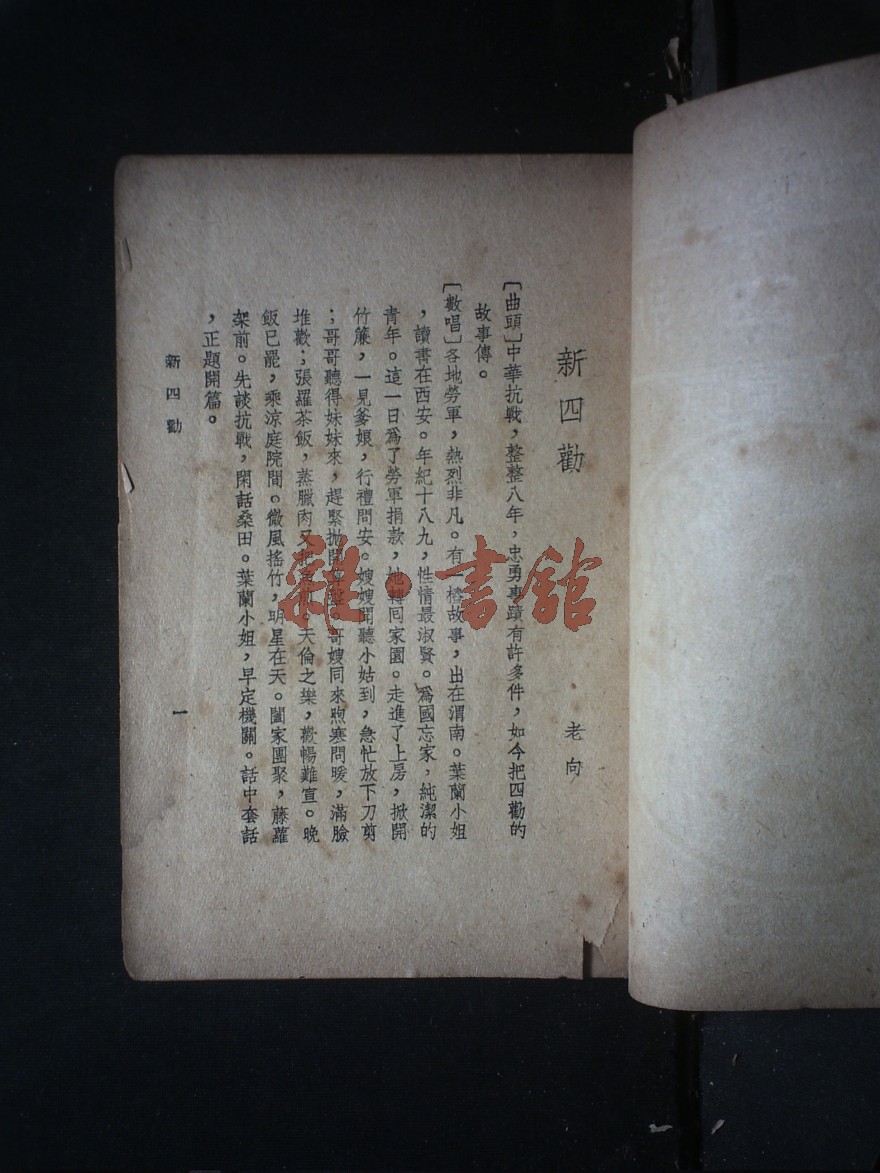 新四勸
老向
〔曲頭〕中華抗戰，整整八年，忠勇事蹟有許多件，如今把四勸的
故事傳。
〔數唱〕各地勞軍，熱烈非凡。有一樁故事，出在渭南。葉蘭小姐
，讀書在西安。年紀十八九，性情最淑賢。爲國忘家，純潔的
青年。這一日爲了勞軍捐款，她轉囘家園。走進了上房，掀開
竹簾，一見爹娘，行禮問安。嫂嫂聞聽小姑到，急忙放下刀剪
；哥哥聽得妹妹來，趕緊拋開　　。哥嫂同來煦寒問暖，滿臉
堆歡；張羅茶飯，蒸臘肉又把　　。天倫之樂，歡暢難宣。晚
飯已罷，乘涼庭院間。微風搖竹，明星在天。闔家團聚，藤蘿
架前。先談抗戰，閑話桑田。葉蘭小姐，早定機關。話中套話
，正題開篇。
新四勸
一
雜·書館